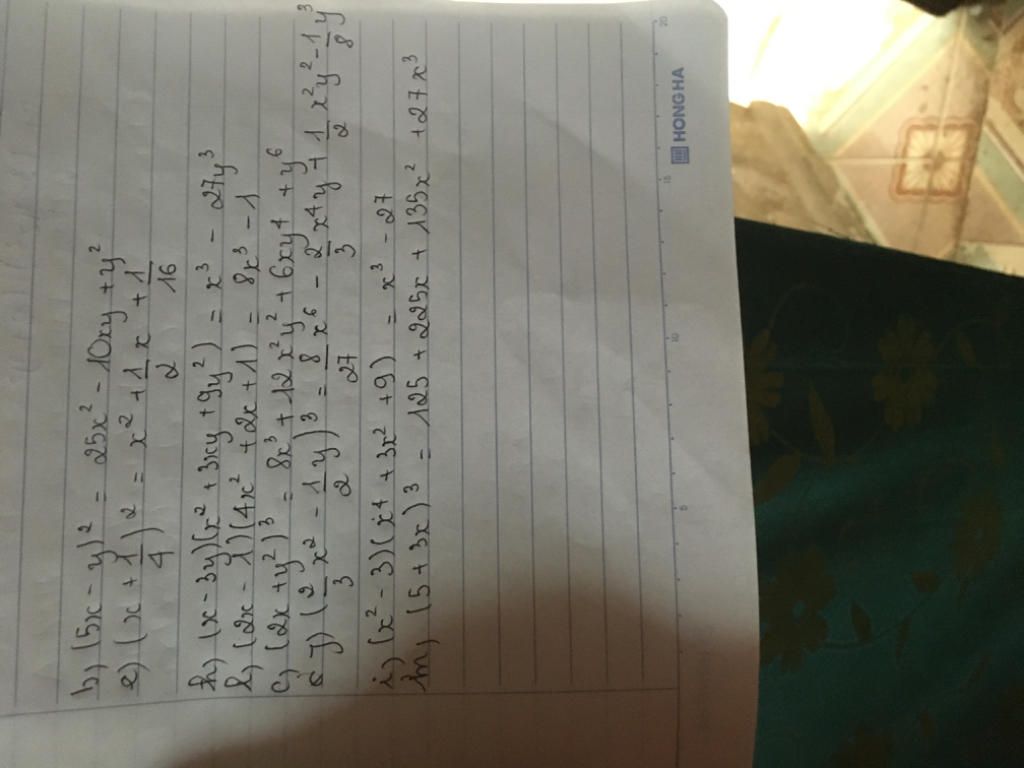 b) (5x - y)² = 25x² - 10xy + y²
e) (x + 1/4)² = x² + 1/2 x + 1/16
h) (x - 3y)(x² + 3xy + 9y²) = x³ - 27y³
k) (2x - 1)(4x² + 2x + 1) = 8x³ - 1
c) (2x + y²)³ = 8x³ + 12x²y² + 6xy⁴ + y⁶
j) (2/3 x² - 1/2 y)³ = 8/27 x⁶ - 2/3 x⁴y + 1/2 x²y² - 1/8 y³
i) (x² - 3)(x⁴ + 3x² + 9) = x³ - 27
m) (5 + 3x)³ = 125 + 225x + 135x² + 27x³
HONG HA
5
10
15
20